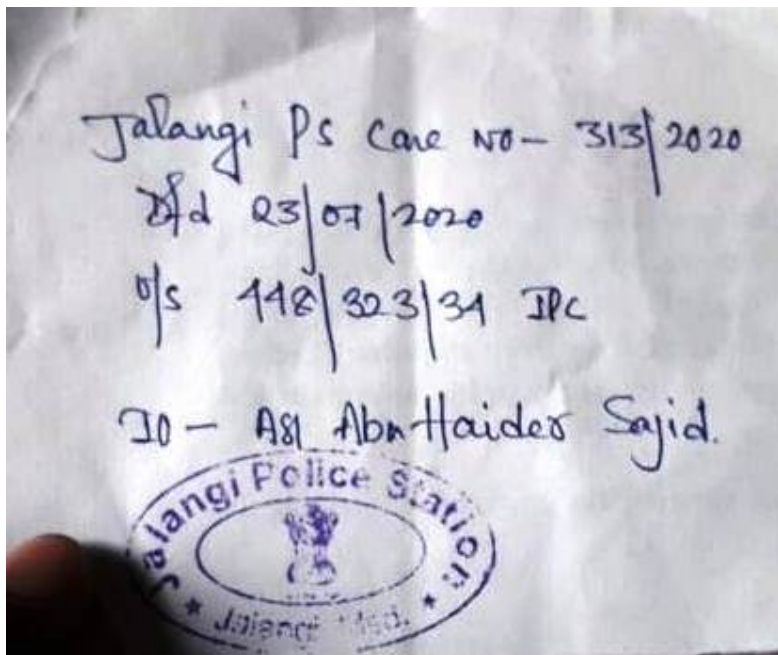 Jalangi PS Case No- 313/2020
Dtd 23/07/2020
u/s 448/323/34 IPC
IO - ASI Abu Haider Sajid.
Jalangi Police Station
* Jalangi Msd. *